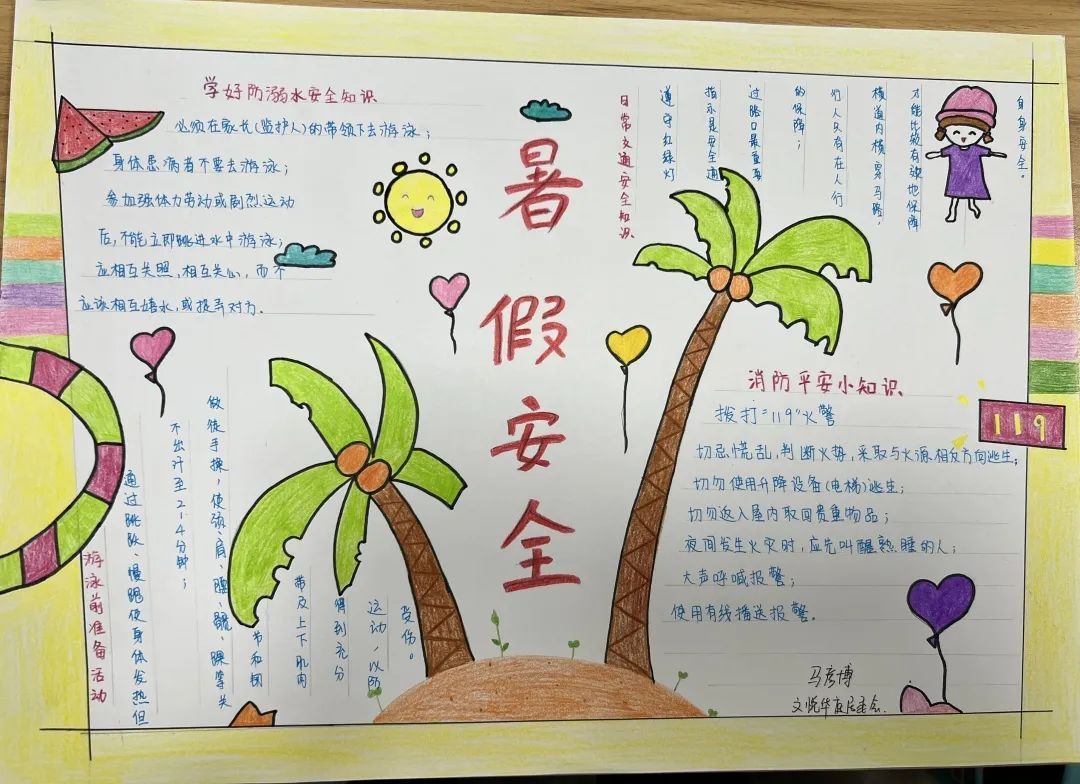 暑假安全
学好防溺水安全知识
必须在家长(监护人)的带领下去游泳；
身体患病者不要去游泳；
参加强体力劳动或剧烈运动
后,不能立即跳进水中游泳；
应相互关照,相互关心,而不
应该相互嬉水,或捉弄对方.
日常交通安全知识
遵守红绿灯
指示是安全通
过路口最重要
的保障；
行人只有在人行
横道内横穿马路,
才能比较有效地保障
自身安全。
游泳前准备活动
通过跳跃、慢跑使身体发热但
不出汗至2-4分钟；
做徒手操，使颈、肩、腰、髋、踝等关
节和韧
带及上下肌肉
得到充分
运动，以防
受伤。
消防平安小知识
拨打"119"火警
119
切忌慌乱,判断火势,采取与火源相反方向逃生；
切勿使用升降设备(电梯)逃生；
切勿返入屋内取回贵重物品；
夜间发生火灾时,应先叫醒熟睡的人；
大声呼喊报警；
使用有线播送报警。
马彦博
文悦华庭居委会.